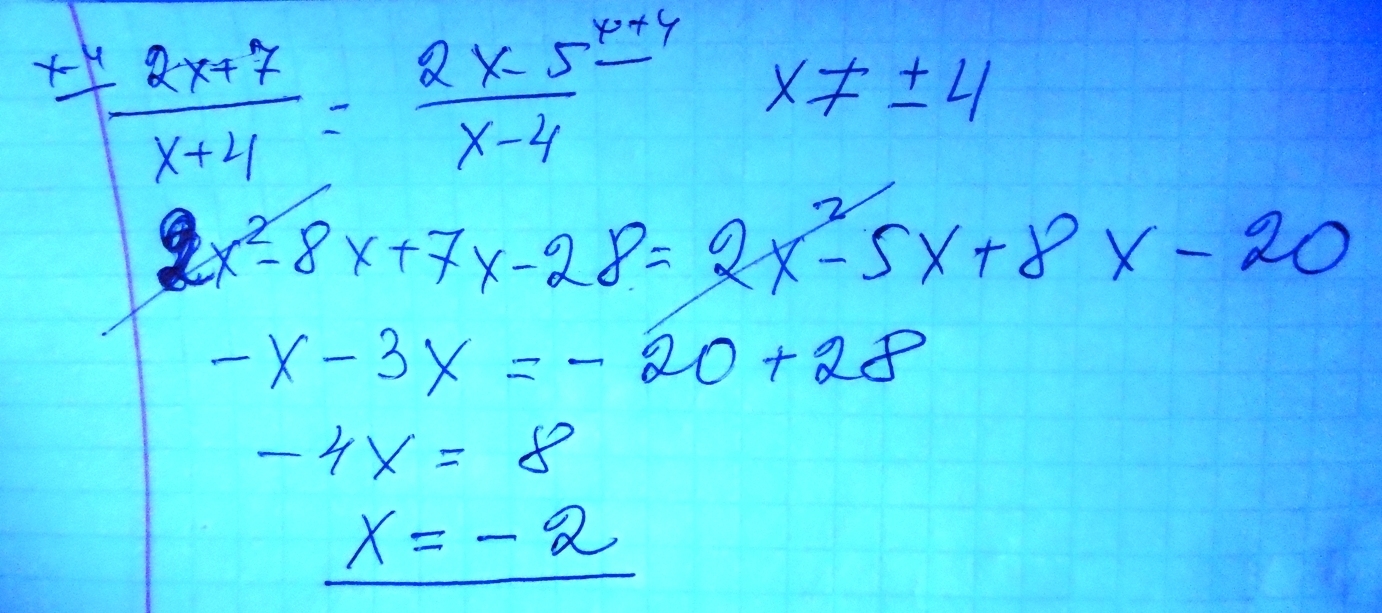 x-4 (2x+7)/(x+4) = (2x-5)/(x-4) x+4 x ≠ ±4
2x²-8x+7x-28=2x²-5x+8x-20
-x-3x=-20+28
-4x=8
x=-2